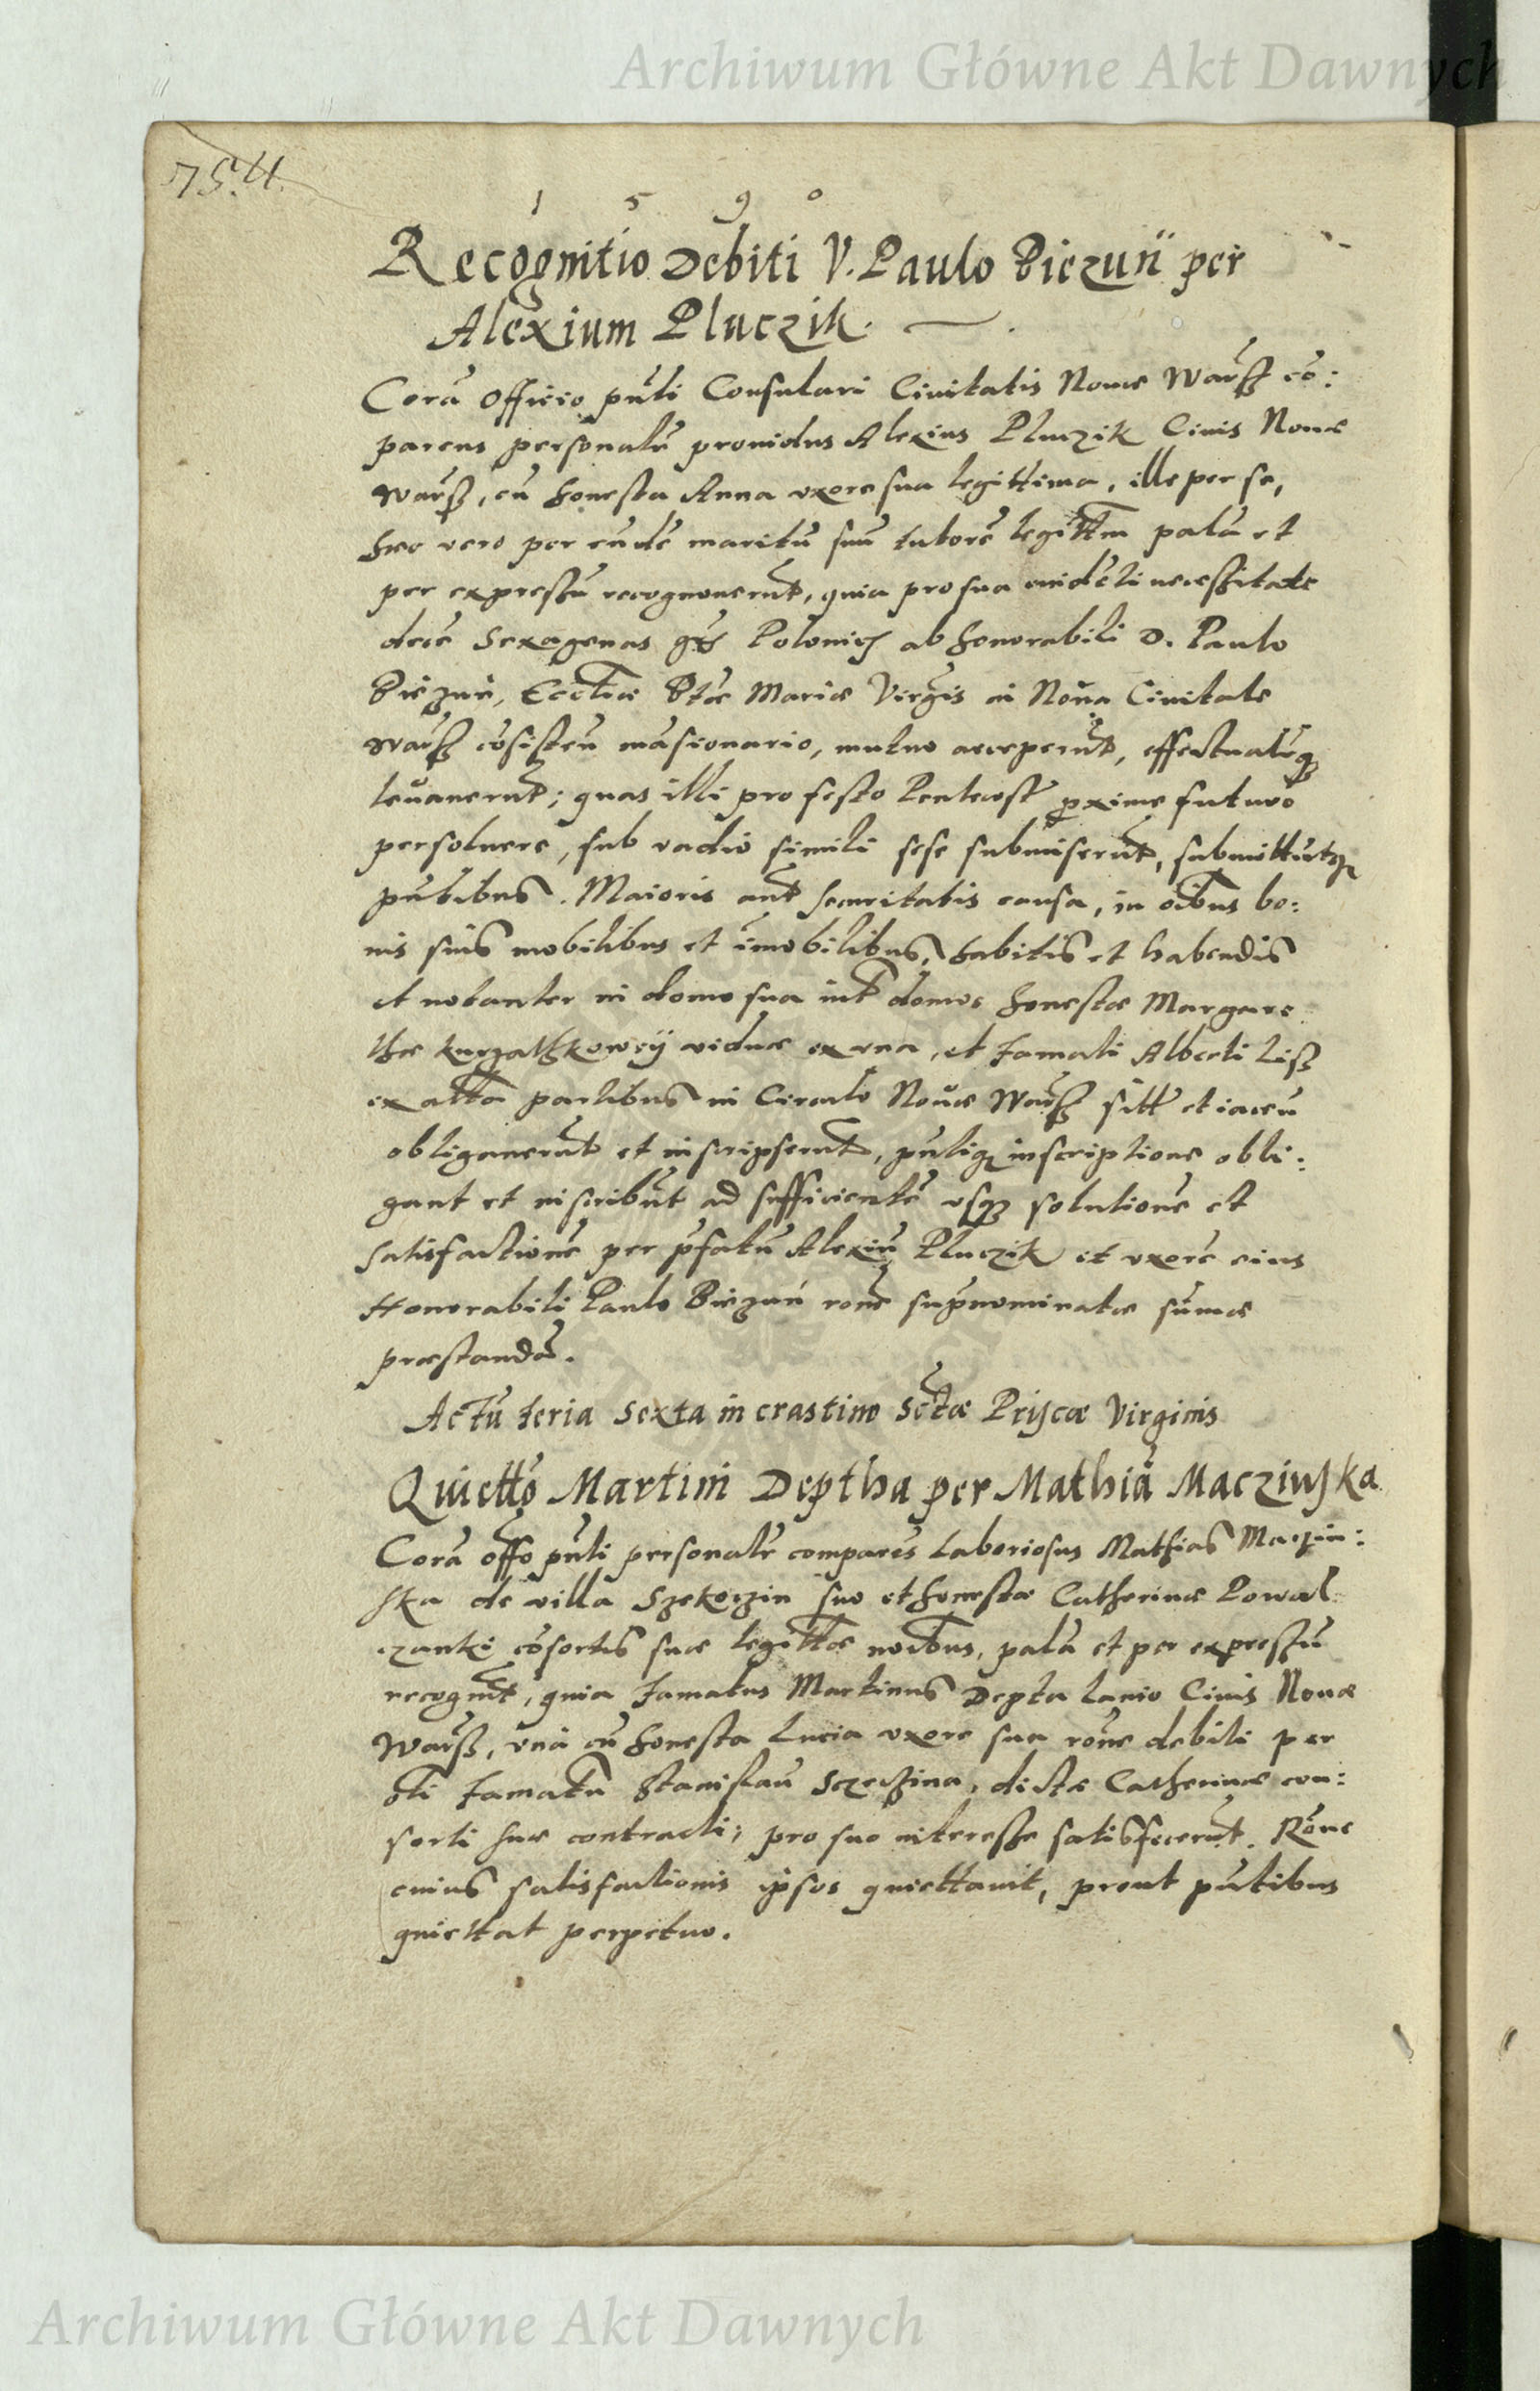 Archiwum Główne Akt Dawnych
754.
1 5 9 0
Recognitio Debiti V. Paulo Biezuń per
Alexium Pluczik.
Corā Officio pn̄ti Consulari Ciuitatis Nouæ Warß cō:
parens personalr̄ prouidus Alexius Pluczik Ciuis Nouæ
Warß, cū honesta Anna vxore sua legittima, ille per se,
hæc vero per eundē maritū suū tutorē legittm̄ palā et
per expressū recognouerūt, quia pro sua euidēti necessitate
decē Sexagenas Polonic ab honorabili D. Paulo
Biezuń, Eccl̄iæ Btæ Mariæ Virgīs in Noua Ciuitate
Warß cōsisten̄ mā̄sionario, mutuo acceperūt, effectualēq₃
leuauerūt; quas illi pro festo Pentecost proxime futuro
persoluere, sub vadio simili sese submiserūt, submittūtq₃
pn̄tibus. Maioris aūt securitatis causa, in oībus bo:
nis suis mobilibus et īmobilibus, habitis et habendis
et notanter in domo sua int̄ domos honestæ Margare
thæ Kurzathkowey viduæ ex vna, et famati Alberti Liß
ex alta partibus in Circulo Nouæ Warß sitt et iacen̄
obligauerūt et inscripserūt, pn̄tiq₃ inscriptione obli:
gant et inscribūt ad sufficientē vsq₃ solutionē et
satisfactionē per p̄fatū Alexiū Pluczik et vxorē eius
Honorabili Paulo Biezuń rōne supnominatæ sūmæ
præstandā.
Actū feria sexta in crastino Sctæ Priscæ Virginis
Quiettō Martini Deptha per Mathiā Macziuska
Corā offo pn̄ti personalr̄ comparēs Laboriosus Mathias Maczin:
ska de villa Szekoczin suo et honestæ Catherinæ Kowal
czanki cōsortis suæ legittæ noībus, palā et per expressū
recognūt, quia famatus Martinus Depta Lanio Ciuis Nouæ
Warß, vnā cū honesta Lucia vxore sua rōne debiti per
oli famatū Stanislaū Sczechina, dictæ Catherinæ con:
sorti suæ contracti; pro suo interesse satisfecerūt. Rōne
cuius satisfactionis ipsos quiettauit, prout pn̄tibus
quiettat perpetuo.
Archiwum Główne Akt Dawnych